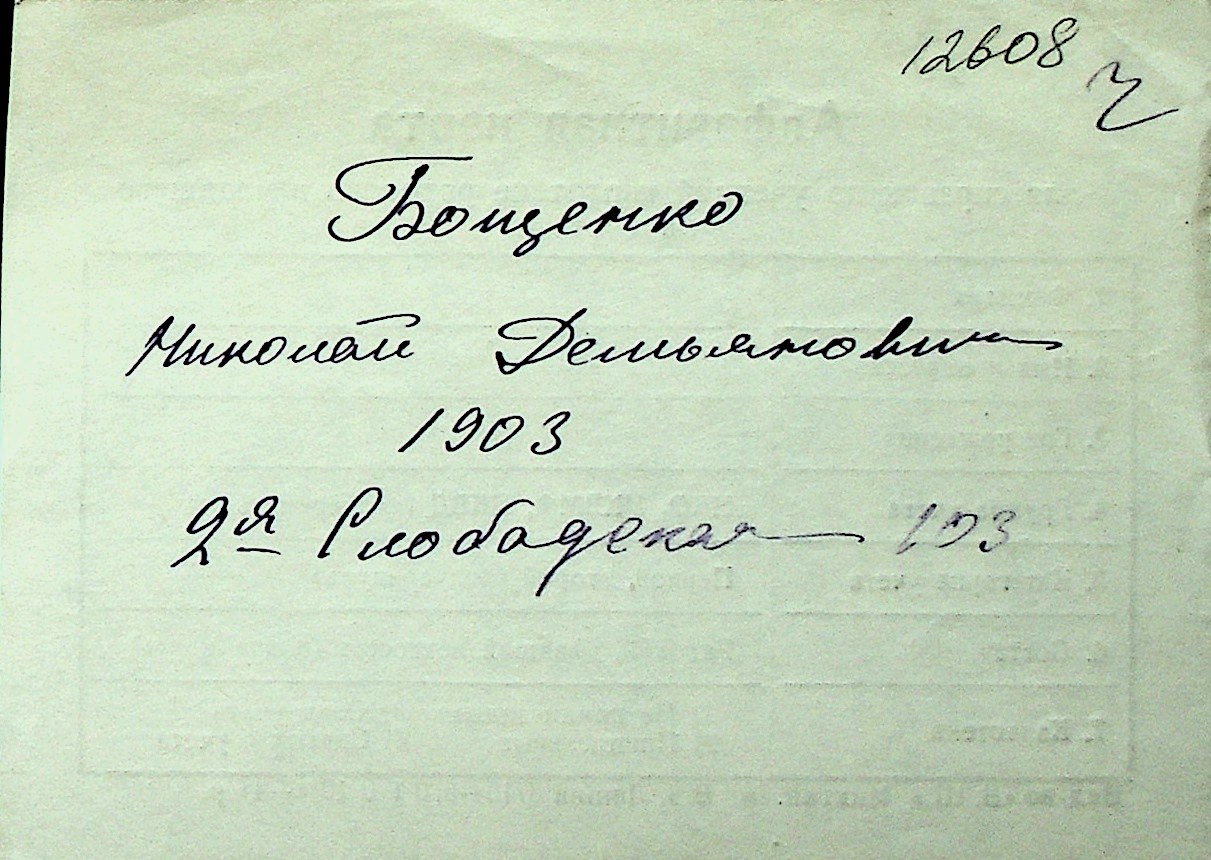 12608 Ч
Бощенко
Николай Демьянович
1903
2я Слободская 103